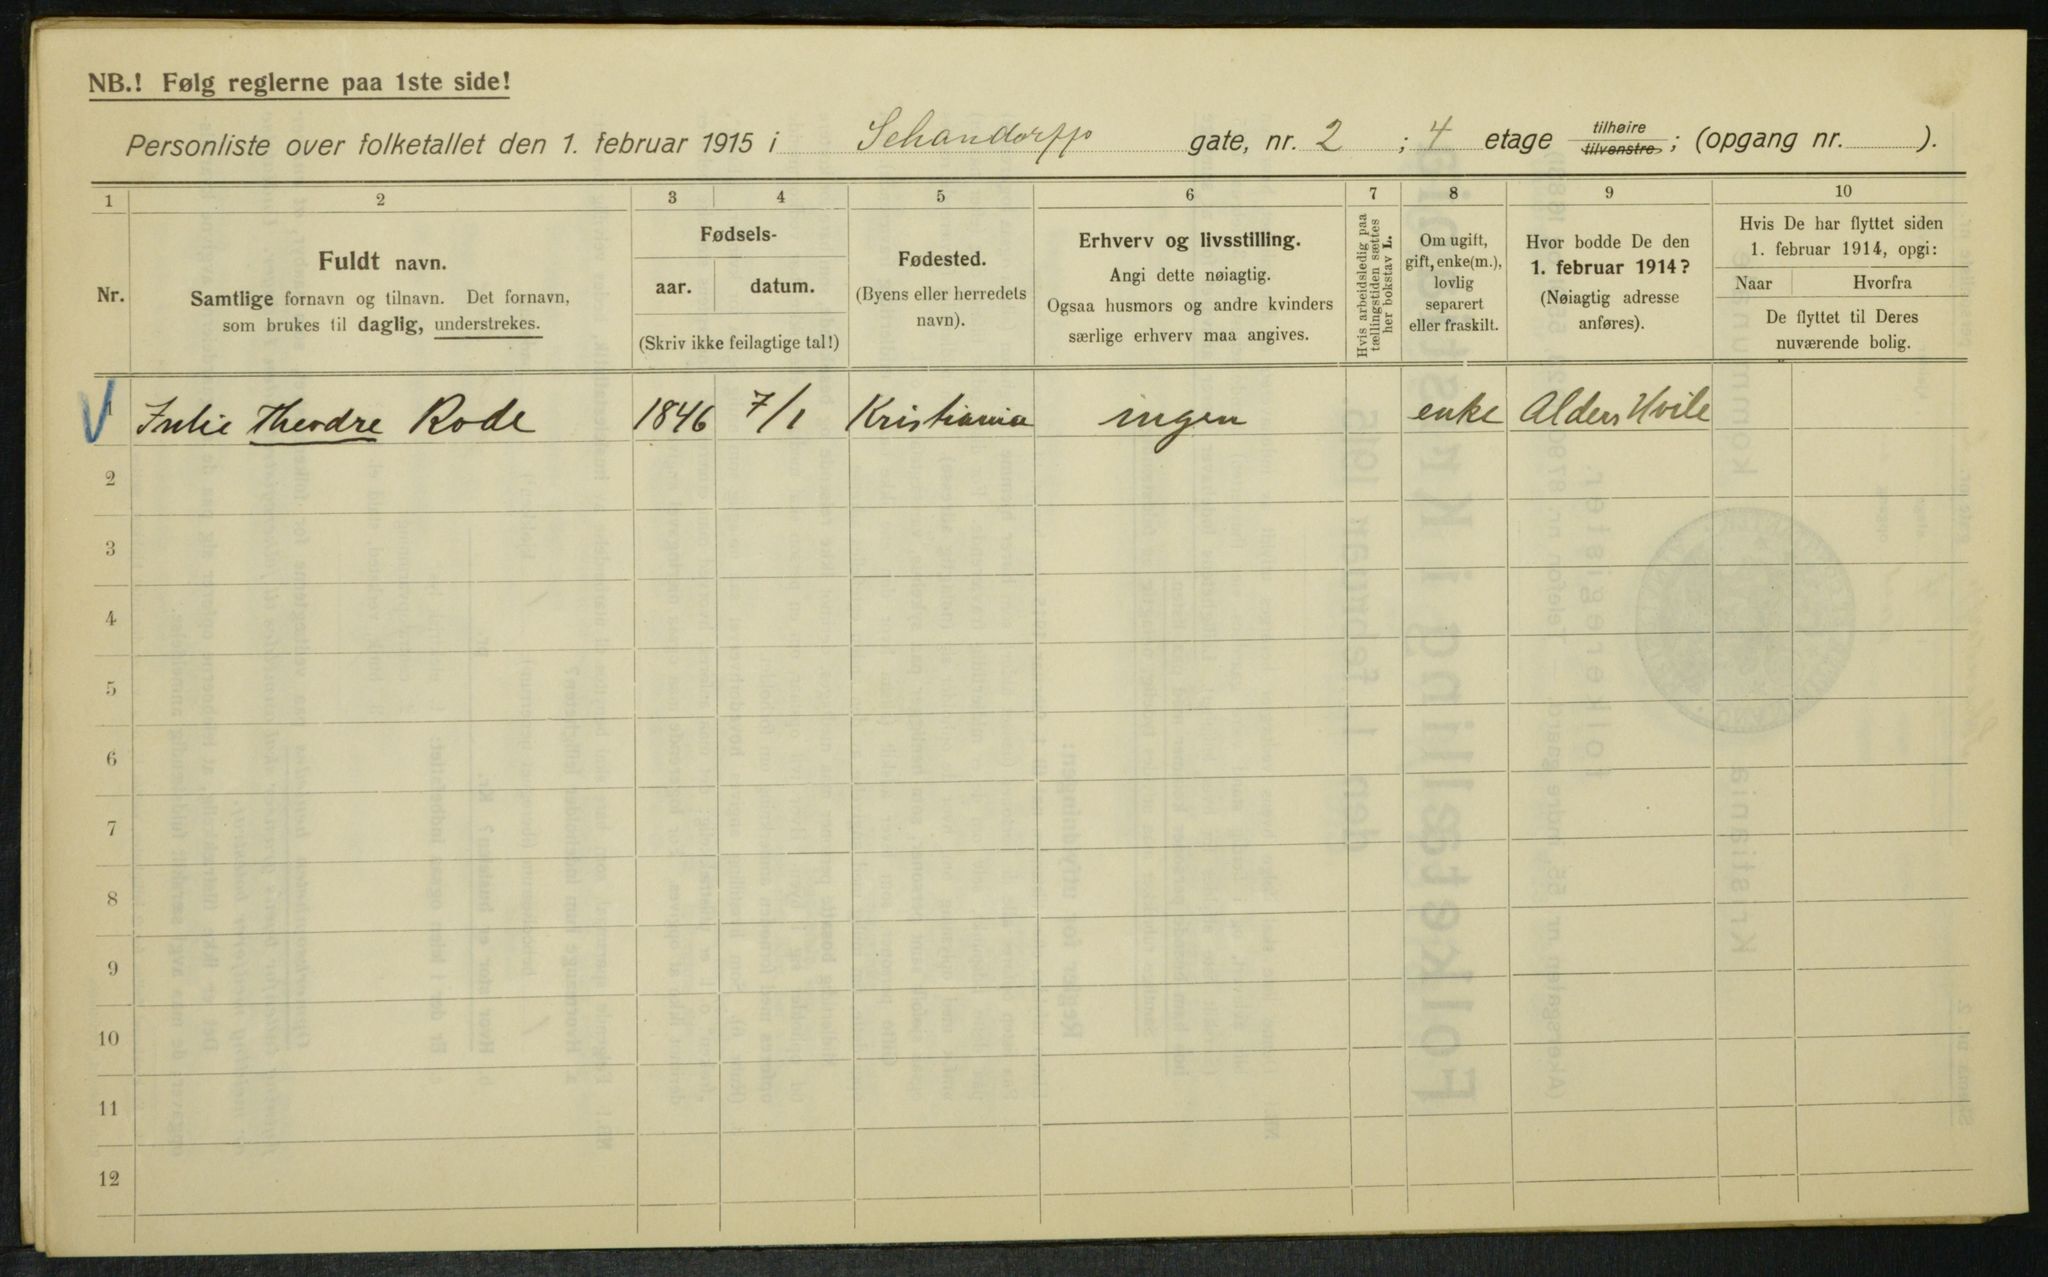 NB.! Følg reglerne paa 1ste side!
Personliste over folketallet den 1. februar 1915 i Schandorffs gate, nr. 2 ; 4 etage tilhøire tilvenstre ; (opgang nr. ).
1 2 3 4 5 6 7 8 9 10
Nr.
Fuldt navn.
Samtlige fornavn og tilnavn. Det fornavn,
som brukes til daglig, understrekes.
Fødsels-
aar. datum.
(Skriv ikke feilagtige tal!)
Fødested.
(Byens eller herredets
navn).
Erhverv og livsstilling.
Angi dette nøiagtig.
Ogsaa husmors og andre kvinders
særlige erhverv maa angives.
Hvis arbeidsledig paa
tællingstiden sættes
her bokstav L.
Om ugift,
gift, enke(m.),
lovlig
separert
eller fraskilt.
Hvor bodde De den
1. februar 1914?
(Nøiagtig adresse
anføres).
Hvis De har flyttet siden
1. februar 1914, opgi:
Naar Hvorfra
De flyttet til Deres
nuværende bolig.
1 Julie Theodre Rode 1846 7/1 Kristiania ingen enke Alders Hvile
2
3
4
5
6
7
8
9
10
11
12